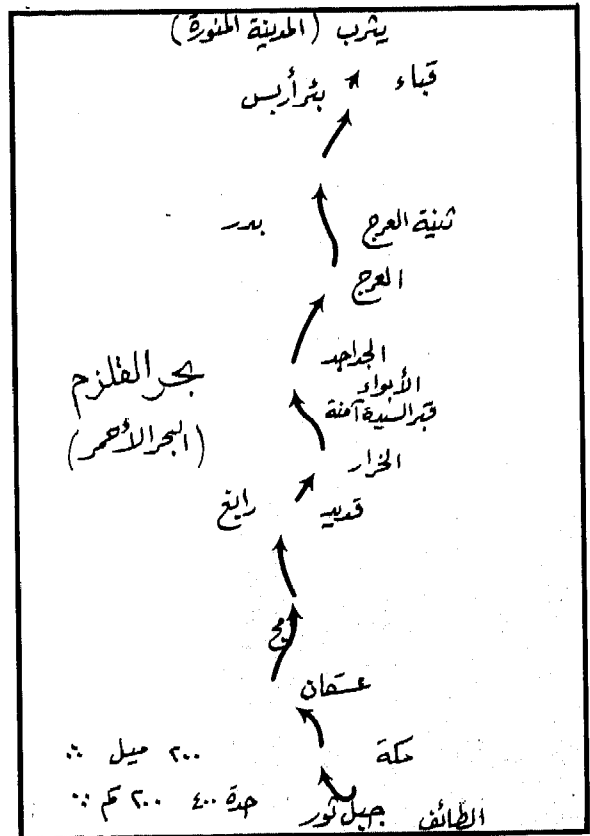 يثرب (المدينة المنورة)
قباء
بئر أريس
ثنية العرج
بدر
العرج
الجداجد
الأبواء
قبر السيدة آمنة
بحر القلزم
(البحر الأحمر)
الخرار
قديد
رابغ
أمج
عسفان
مكة
٢٠٠ ميل
الطائف
جبل ثور
جدة ٤٠٠ ٢٠٠ كم